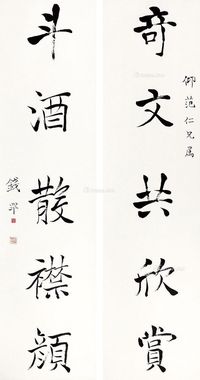 范仁兄屬
奇文共欣賞
斗酒散襟顏
錢罕